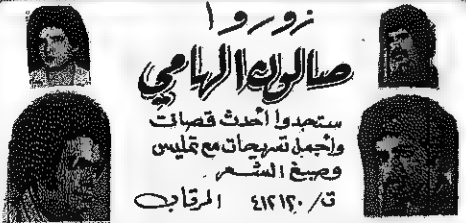 زوروا
صالون الهامي
ستجدوا أحدث قصات
وأجمل تسريحات مع تمليس
وصبغ الشعر
ت/٤١٢١٢٠ المرقاب